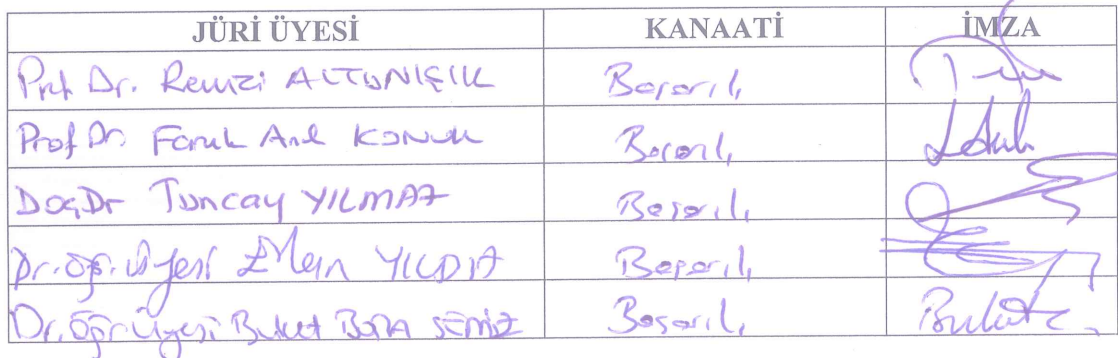 JÜRİ ÜYESİ KANAATİ İMZA
Prof. Dr. Remzi ALTUNIŞIK Başarılı
Prof Dr. Faruk Anıl KONUK Başarılı
Doç.Dr Tuncay YILMAZ Başarılı
Dr. Öğr. Üyesi YILDIZ Başarılı
Dr. Öğr. Üyesi Buket BORA SEMİZ Başarılı